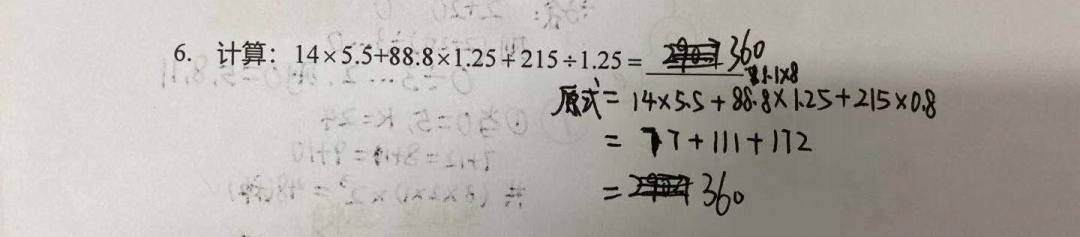 6. 计算：14×5.5+88.8×1.25+215÷1.25= 360
11.1×8
原式=14×5.5+88.8×1.25+215×0.8
=77+111+172
=360